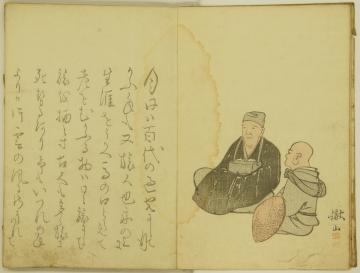 月日ハ百代の過客にして行
かふ年も又旅人也舟の上に
生涯をうかへ馬の口とらえて
老をむかふる物ハ日々旅にして
旅を栖とす古人も多く旅に
死せるありいつれの年
よりか片雲の風にさそはれて